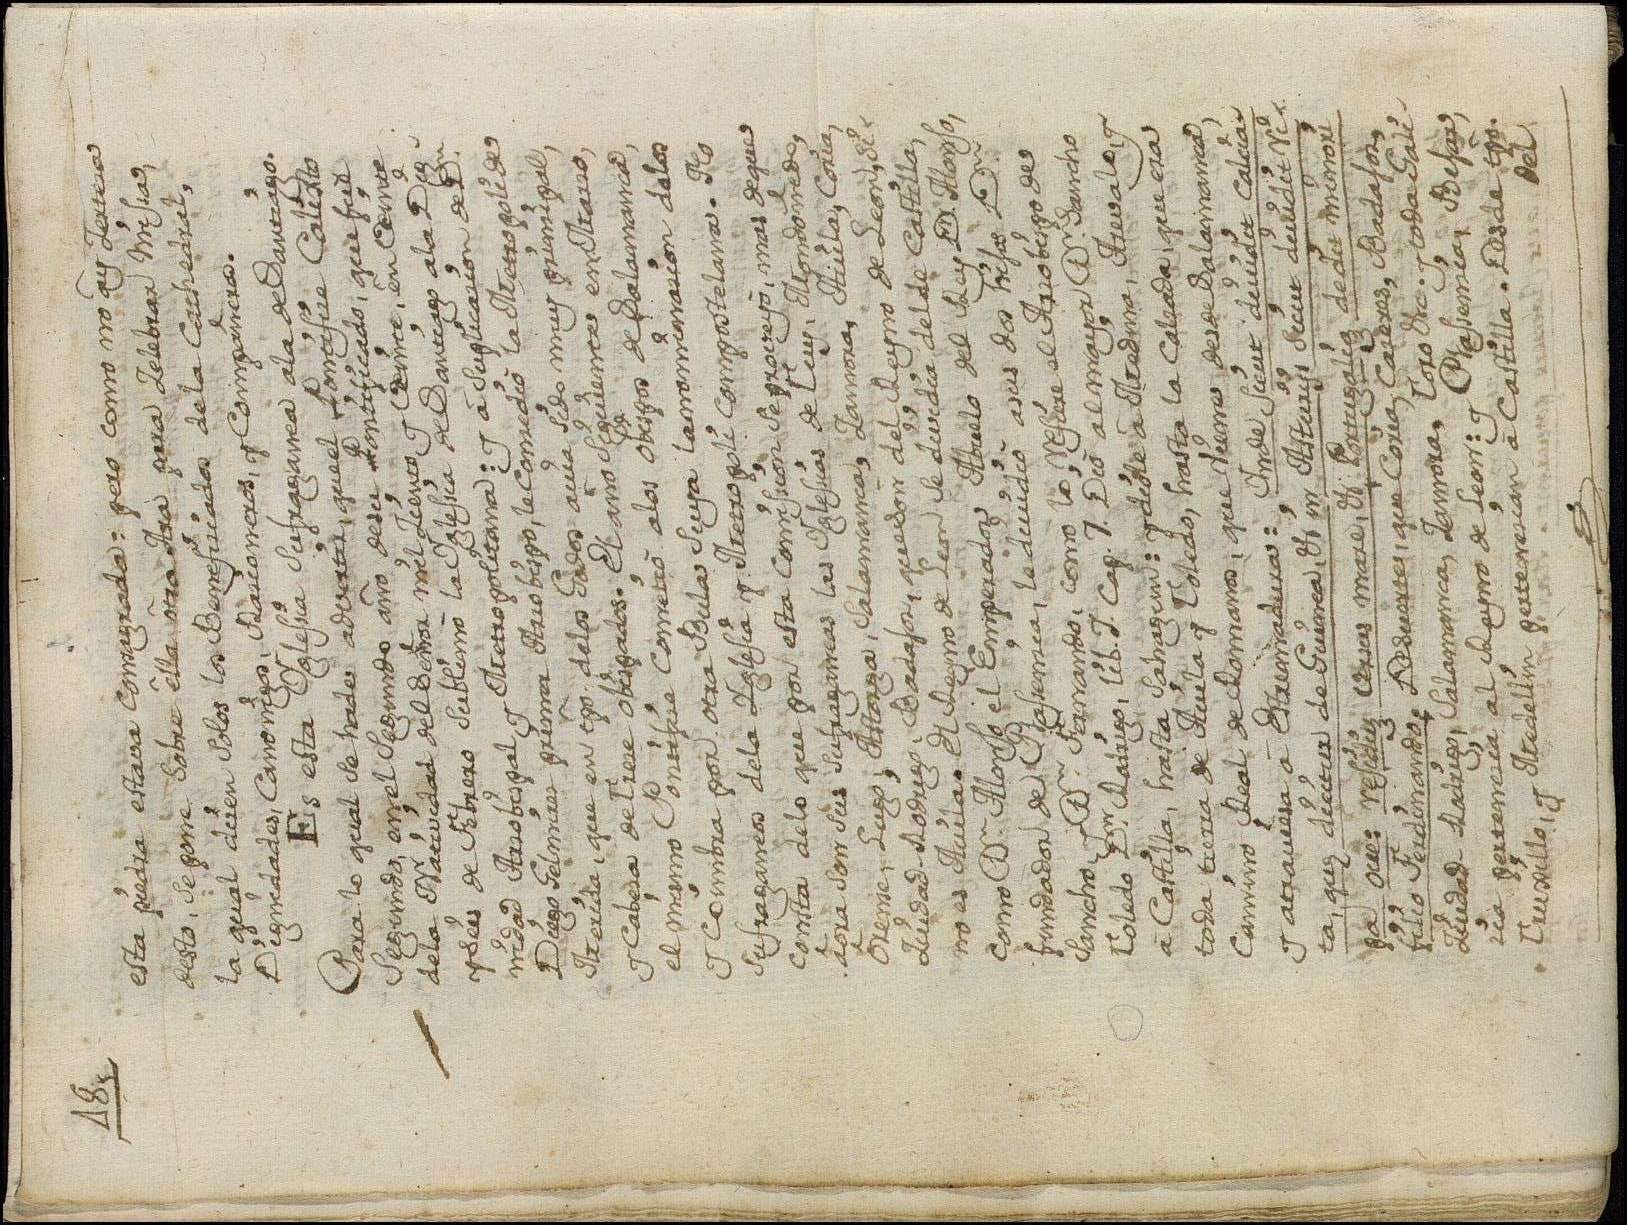 18.
esta piedra estara consagrada: pero como nrō
desto, se pone sobre ella vna Ara para Zelebrar Misa,
la qual dizen solos los Beneficiados de la Cathedral,
Dignidades, Canonigos, Razioneros, y Compañeros.
Es esta Yglesia Sufraganea ala de Santiago.
Para lo qual se hade aduertir, que el Pontifize Calisto
Segundo, en el Segundo año desu Pontificado, que fue
dela Natiuidad del Señor mil Ziento y Veinte, en Veinte
y seis de Febrero sublimò la Yglesia de Santiago ala Dig
nidad Arzobispal, y Metropolitana: y à Suplicazion de Dn.
Diego Gelmirez primer Arzobispo, le Comedio la Metropoli de
Merida, que en tpō. delos Godos auia sido muy prinzipal,
y Cabeza de treze obispados. El año Siguiente, en Marzo,
el mismo Pontifize Cometio alos obispos de Salamanca,
y Coimbra por otra Bula Suya la nominazion delos
Sufraganeos dela Yglesia y Metropoli Compostelana. No
consta delo que por esta Comision se proueyò, mas deque
aora son sus Sufraganeas las Yglesias de Tuy, Mondoñedo,
Orense, Lugo, Astorga, Salamanca, Zamora, Auila, Coria,
Ziudad-Rodrigo, Badajoz, que son del Reyno de Leon, Si
no es Auila. El Reyno de Leon se diuidia del de Castilla,
como Dn. Alonso el Emperador, Abuelo del Rey D. Alonso,
fundador de Plasenzia, la diuidiò a sus dos hijos Dn.
Sancho, y Dn. Fernando, como lo refiere el Arzobispo de
Toledo Dn. Rodrigo, Lib. 7. Cap. 7. Diò al mayor Dn. Sancho
à Castilla, hasta Sahagun: y deste à Medina, Areualo, y
toda tierra de Auila y Toledo, hasta la Calzada, que era
Camino Real de Romanos, que viene desde Salamanca,
y atrauiesa à Extremadura: Inde sicut diuidit Calcia-
ta, que dicitur de Guinea, & in Asturijs sicut diuidit
ga oue: residuum versus mare, & Portugaliam dedit minori
filio Ferdinando. De suerte, que Coria, Cazeres, Badajoz,
Ziudad-Rodrigo, Salamanca, Zamora, Toro &c. y toda Gali-
zia pertenezia al Reyno de Leon: y Plasenzia, Bejar,
Truxillo, y Medellin pertenezian à Castilla. Desde tpō.
del